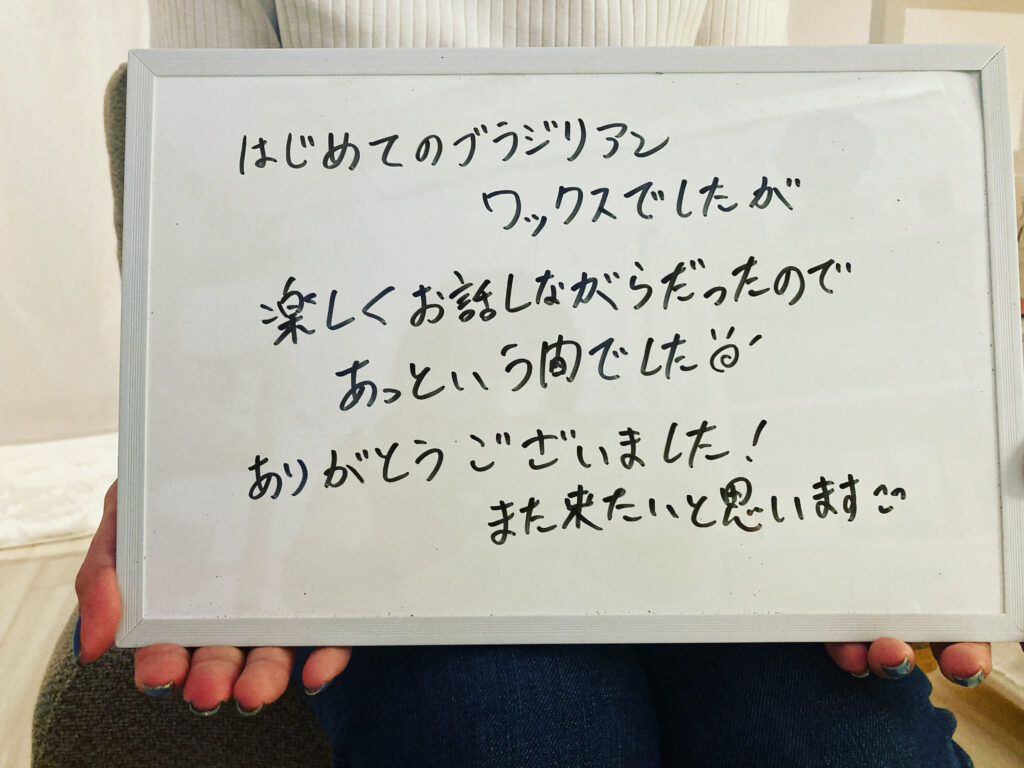 はじめてのブラジリアン
ワックスでしたが
楽しくお話しながらだったので
あっという間でした
ありがとうございました!
また来たいと思います